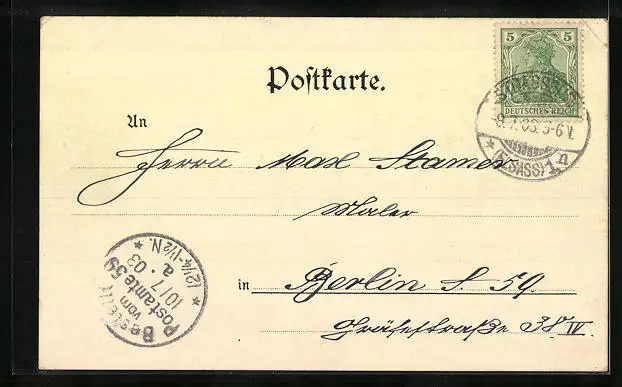 Postkarte.
5 5
DEUTSCHES REICH
STRASSBURG
9.7.03. 5-6 V.
* (ELSASS) 1 n
An
Herrn Max Stamer
Maler
in Berlin S. 59.
Gräfestraße 38 IV.
Bestellt
vom
Postamte 59
10/7.03
a.
* 12 1/4-1 1/2 N. *